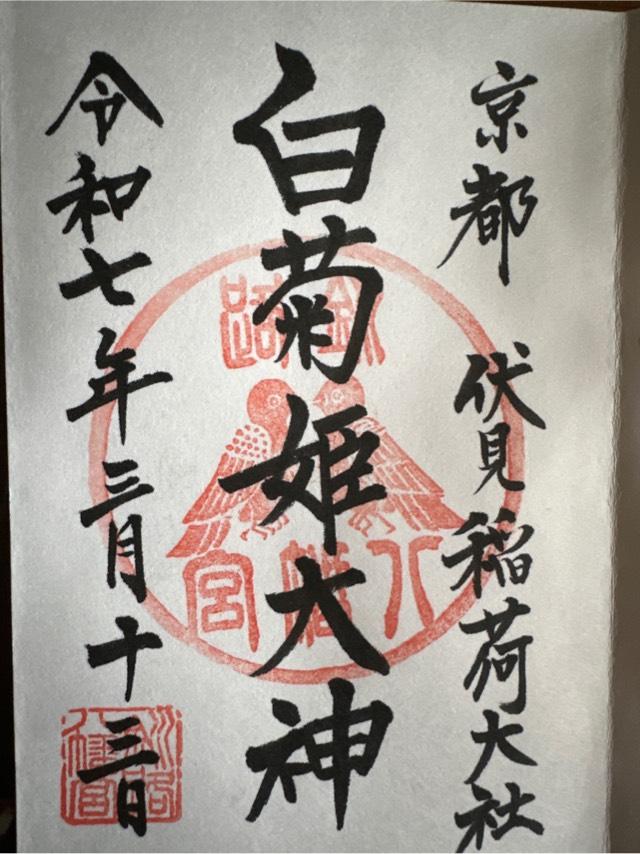 京都 伏見稲荷大社
白菊姫大神
令和七年三月十三日
釧路
八幡宮